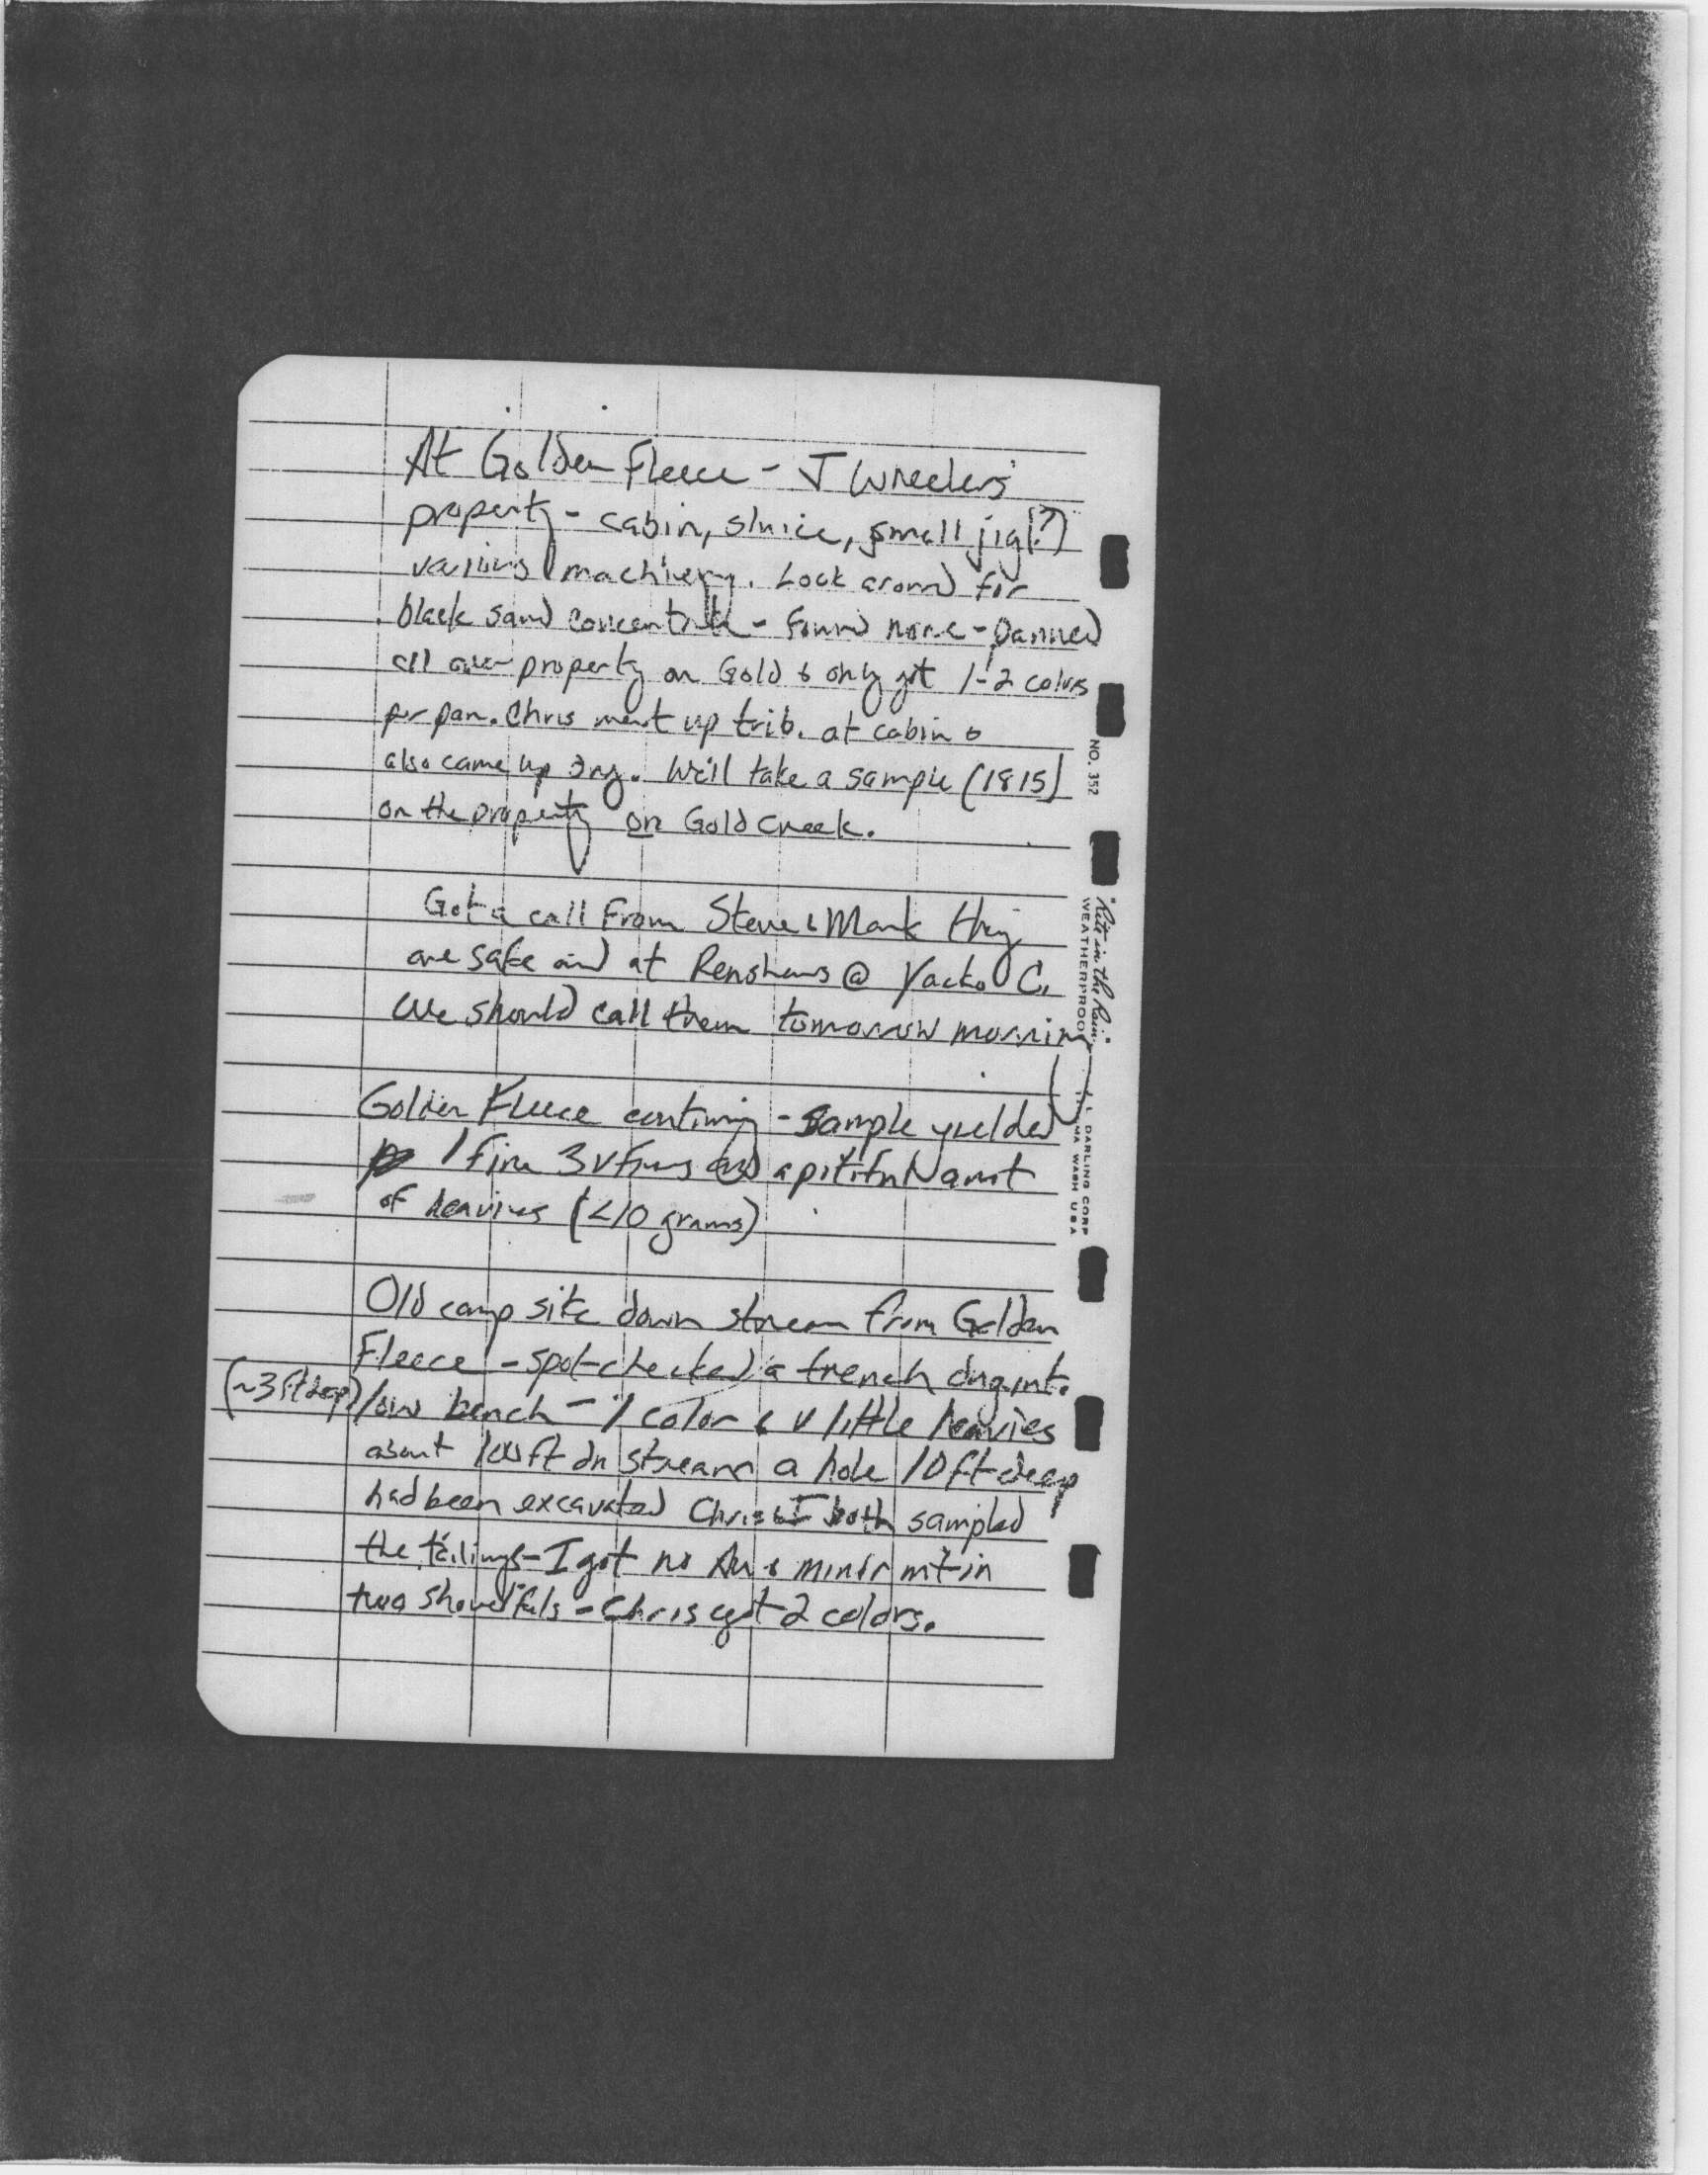 At Golden Fleece - J Wheelers
property - cabin, sluice, small jig(?)
various machinery. Look around for
black sand concentrate - found none - Panned
all over property on Gold & only got 1-2 colors
per pan. Chris went up trib. at cabin &
also came up . We'll take a sample (1815)
on the property on Gold Creek.
Got a call From Steve & Mark they
are safe and at Renshaws @ Yacko C.
We should call them tomorrow morning
Golden Fleece continuing - Sample yielded
1 fine 3 v fines and a pitiful amt
of heavies (<10 grams)
Old camp site down stream from Golden
Fleece - spot-checked a trench dug into
(~3 ft deep) low bench - 1 color & v little heavies
about 100 ft dn stream a hole 10 ft deep
had been excavated Chris & I both sampled
the tailings - I got no Au & minor mt in
two shovelfuls - Chris got 2 colors.
NO. 352
"Rite in the Rain"
WEATHERPROOF
J. L. DARLING CORP
WASH USA